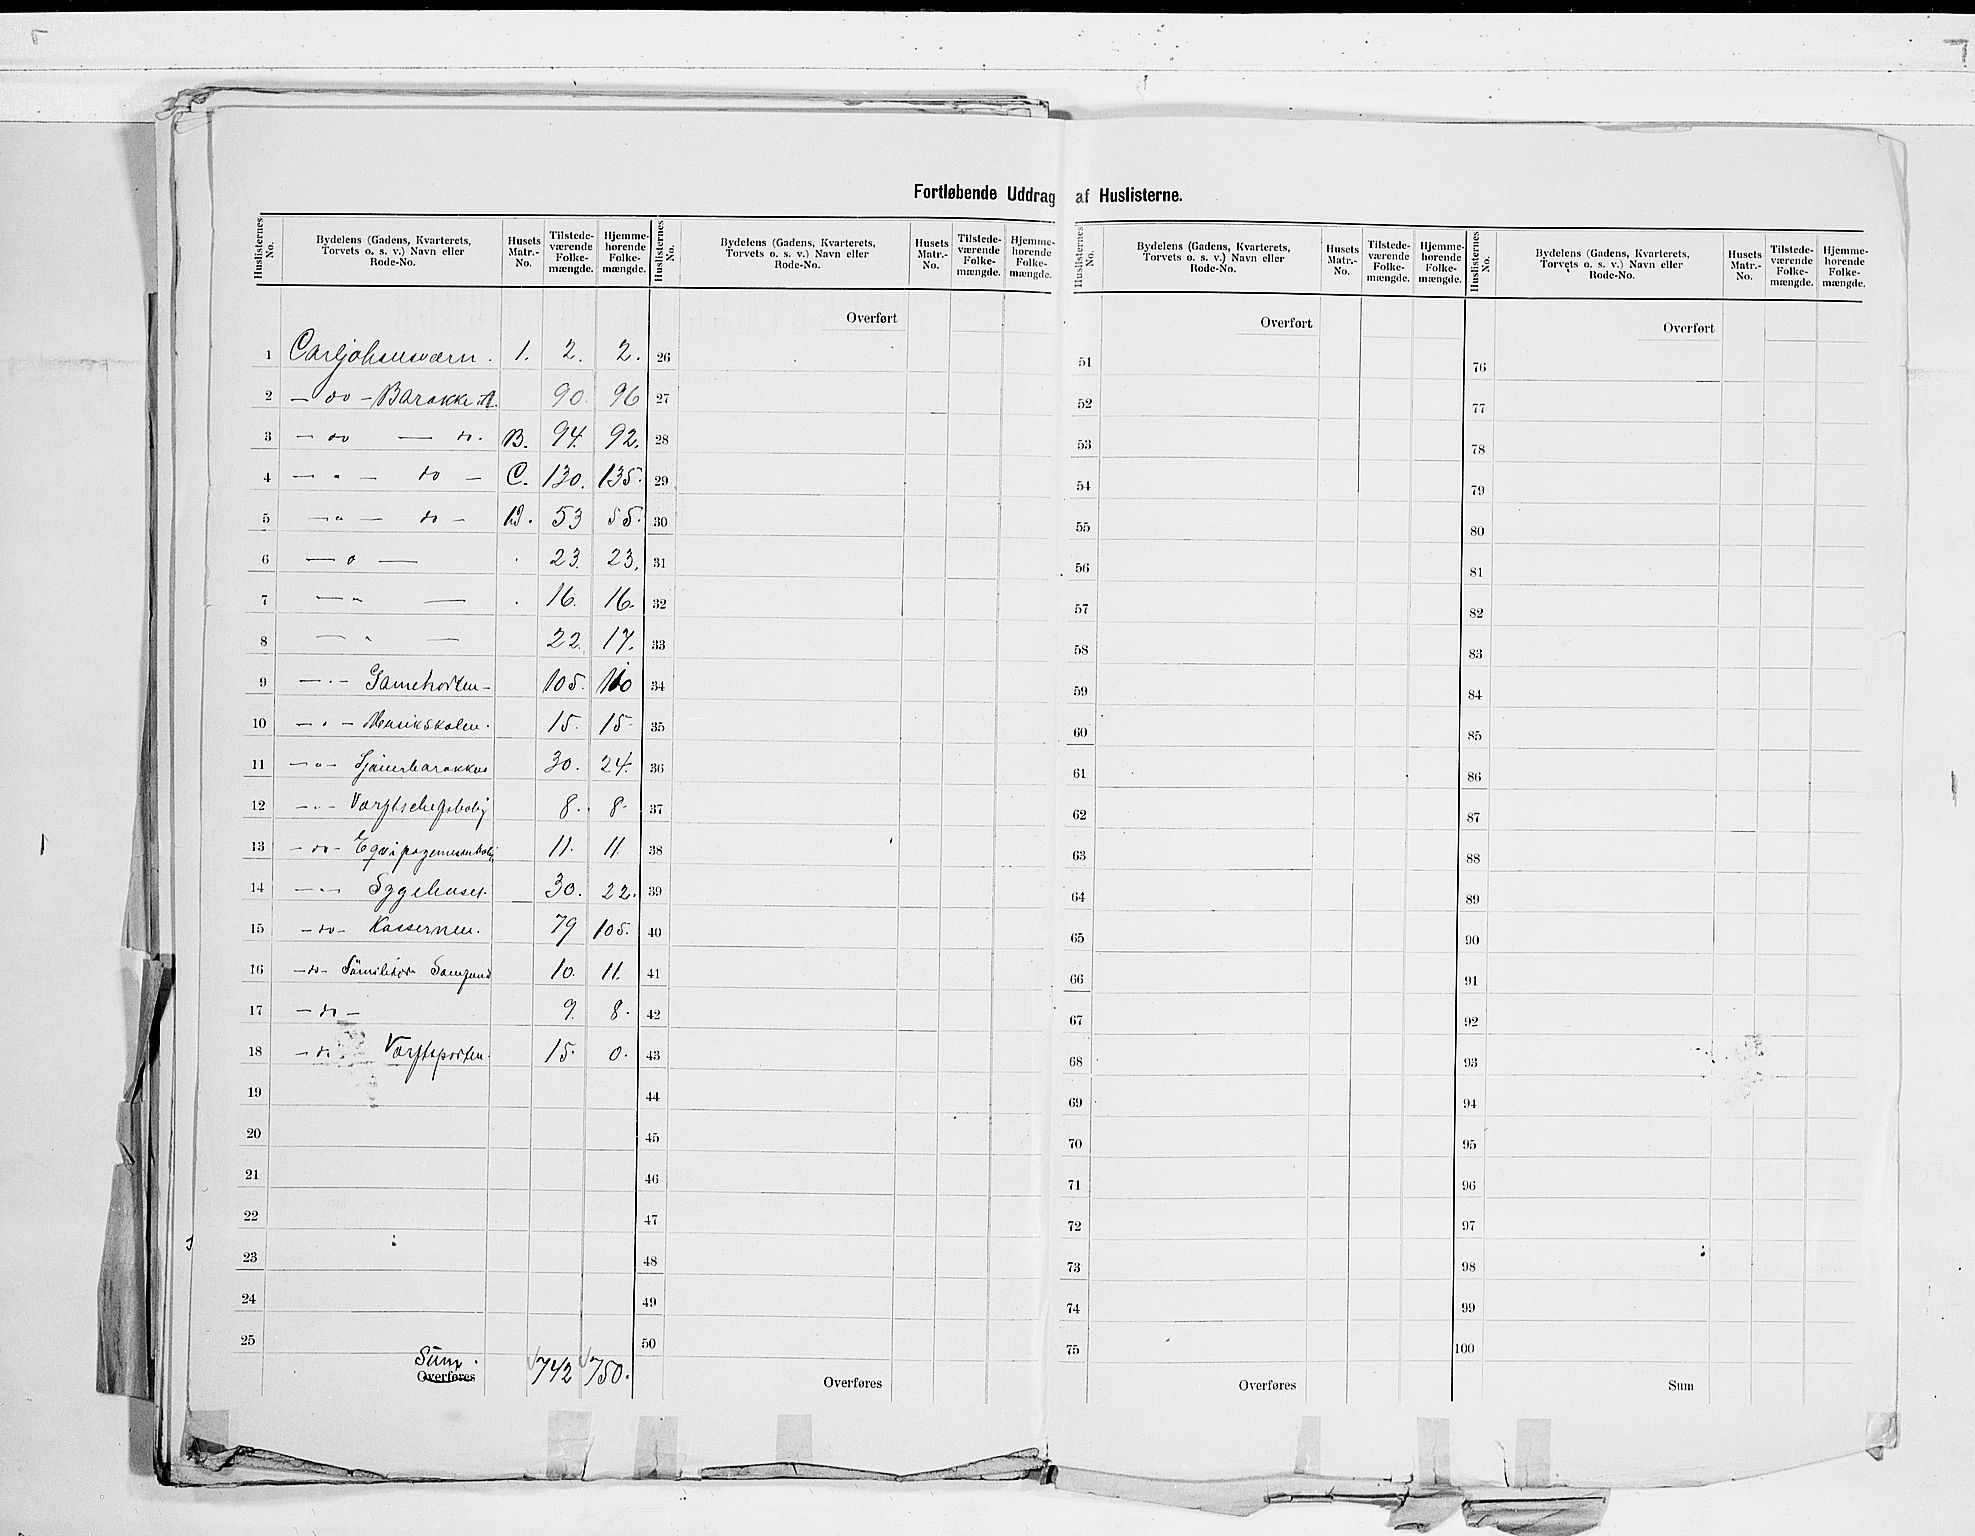 Fortløbende Uddrag af Huslisterne.
Huslisternes No. | Bydelens (Gadens, Kvarterets, Torvets o. s. v.) Navn eller Rode-No. | Husets Matr.-No. | Tilstede-værende Folke-mængde. | Hjemme-hørende Folke-mængde. | Huslisternes No. | Bydelens (Gadens, Kvarterets, Torvets o. s. v.) Navn eller Rode-No. | Husets Matr.-No. | Tilstede-værende Folke-mængde. | Hjemme-hørende Folke-mængde. | Huslisternes No. | Bydelens (Gadens, Kvarterets, Torvets o. s. v.) Navn eller Rode-No. | Husets Matr.-No. | Tilstede-værende Folke-mængde. | Hjemme-hørende Folke-mængde. | Huslisternes No. | Bydelens (Gadens, Kvarterets, Torvets o. s. v.) Navn eller Rode-No. | Husets Matr.-No. | Tilstede-værende Folke-mængde. | Hjemme-hørende Folke-mængde.
Overført Overført Overført
1 Carljohansværn. 1. 2. 2. 26 51 76
2 — do — Barakke A. 90. 96 27 52 77
3 — do — do. B. 94. 92. 28 53 78
4 — " — do — C. 130. 135. 29 54 79
5 — " — do — D. 53 55. 30 55 80
6 — o — 23. 23. 31 56 81
7 — " — 16. 16. 32 57 82
8 — " — 22. 17. 33 58 83
9 — " — 105. 110 34 59 84
10 — " — Musikskolen. 15. 15. 35 60 85
11 — " — 30. 24. 36 61 86
12 — " — Værftschefsbolig 8. 8. 37 62 87
13 — do — 11. 11. 38 63 88
14 — " — Sygehuset. 30. 22. 39 64 89
15 — do — Kassernen. 79 105. 40 65 90
16 — do — 10. 11. 41 66 91
17 — do — 9. 8. 42 67 92
18 — do Værftsporten. 15. 0. 43 68 93
19 44 69 94
20 45 70 95
21 46 71 96
22 47 72 97
23 48 73 98
24 49 74 99
25 50 75 100
Sum.
Overføres 742 750. Overføres Overføres Sum